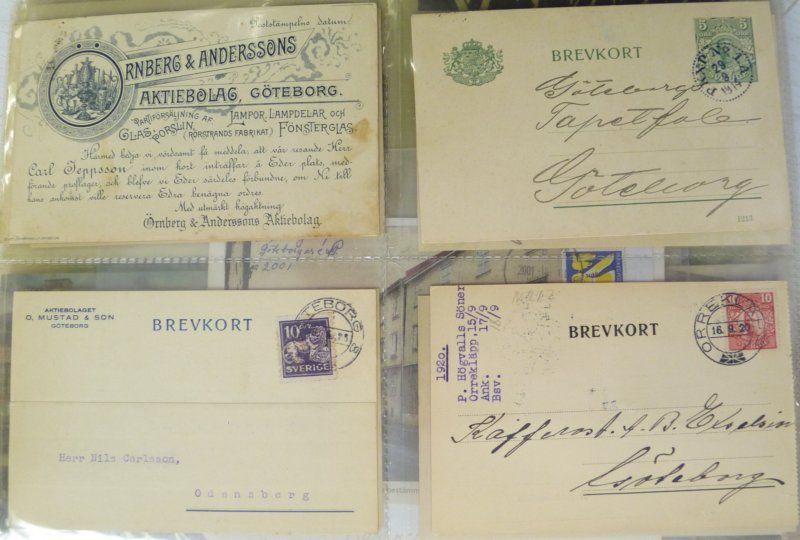 Poststämpelns datum.
ÖRNBERG & ANDERSSONS
AKTIEBOLAG, GÖTEBORG.
PARTIFÖRSÄLJNING AF
GLAS, PORSLIN, (RÖRSTRANDS FABRIKAT) LAMPOR, LAMPDELAR, OCH FÖNSTERGLAS.
Härmed bedja vi vördsamt få meddela, att vår resande Herr
Carl Jeppsson, inom kort inträffar å Eder plats, med-
förande proflager, och blefve vi Eder särdeles förbundne, om Ni till
hans ankomst ville reservera Edra benägna ordres.
Med utmärkt högaktning
Örnberg & Anderssons Aktiebolag.
BREVKORT
5 5
ÖRE
29
Göteborgs
Tapetfab.
Göteborg
1213
Göteborgaren
2001
2001
AKTIEBOLAGET
O. MUSTAD & SON
GÖTEBORG
BREVKORT
GÖTEBORG
10
SVERIGE
Herr Nils Carlsson,
Odensberg
1920.
P. Högvalls Söner
Orrekläpp.15/9
Ank. 17/9
Bsv.
BREVKORT
10
16.9.20
Kafferost. A.B. Excelsior
Göteborg
bestäm